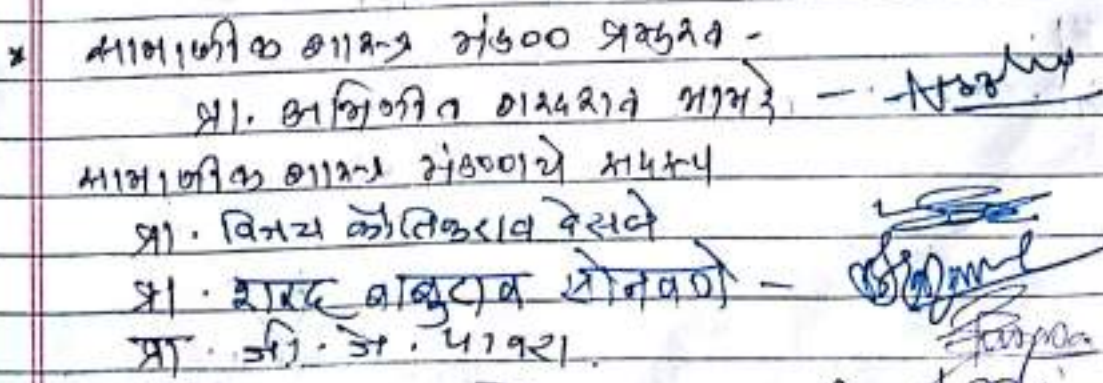 * सामाजीक शास्त्र मंडळ प्रमुख -
प्रा. अभिजीत शरदराव भामरे. -
सामाजीक शास्त्र मंडळाचे सदस्य
प्रा. विनय कौतिकराव देसले
प्रा. शरद बाबुराव सोनवणे -
प्रा. जी. जे. पावरा.